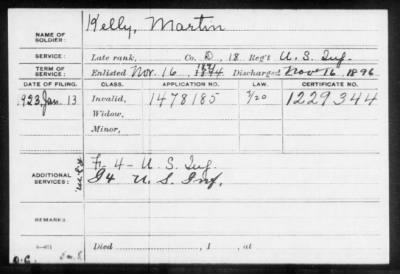 NAME OF SOLDIER: Kelly, Martin
SERVICE: Late rank, Co. D, 18 Reg't U.S. Inf.
TERM OF SERVICE: Enlisted Nov. 16, 1894 Discharged Nov 16, 1896
DATE OF FILING. CLASS. APPLICATION NO. LAW. CERTIFICATE NO.
1923, Jan. 13 Invalid, 1478185 7/20 1229344
Widow,
Minor,
ADDITIONAL SERVICES: F, 4 - U.S. Inf.
G 4 U.S. Inf.
REMARKS:
Died , 1 , at